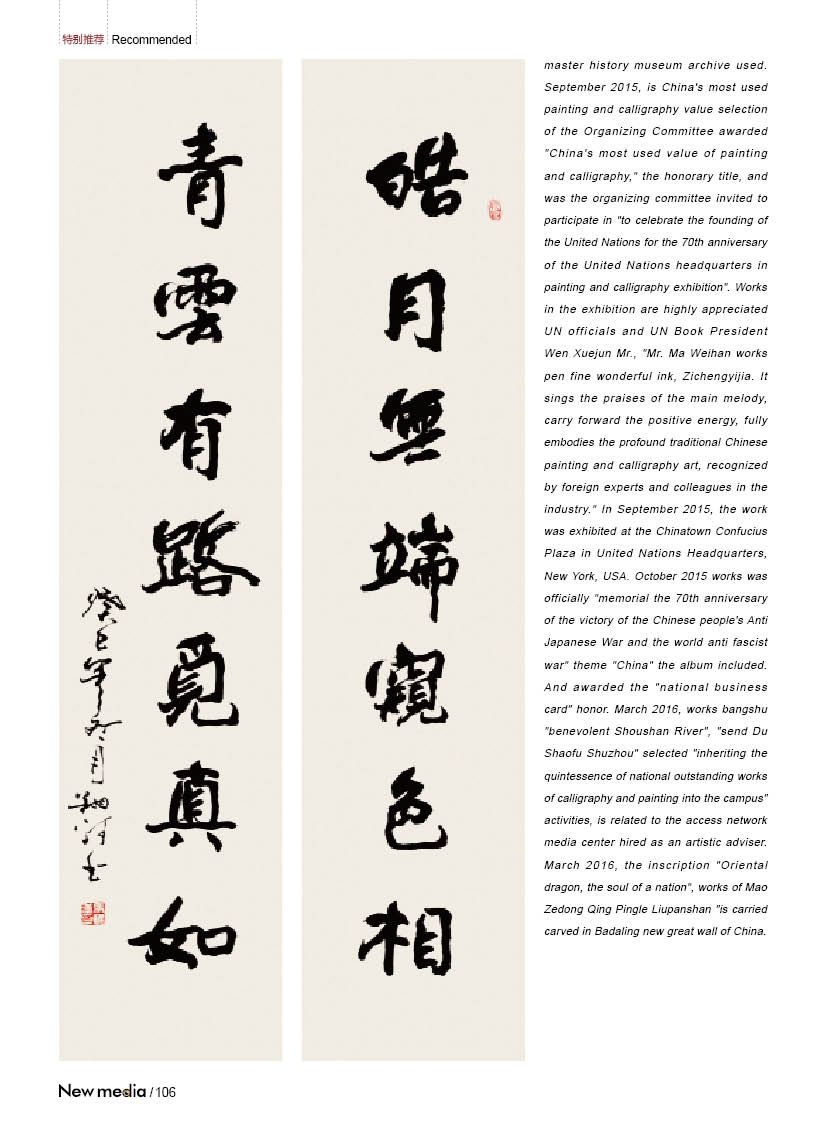 特别推荐 Recommended
皓月無端窺色相
青雲有路覓真如
癸巳年冬月
master history museum archive used.
September 2015, is China's most used
painting and calligraphy value selection
of the Organizing Committee awarded
"China's most used value of painting
and calligraphy," the honorary title, and
was the organizing committee invited to
participate in "to celebrate the founding of
the United Nations for the 70th anniversary
of the United Nations headquarters in
painting and calligraphy exhibition". Works
in the exhibition are highly appreciated
UN officials and UN Book President
Wen Xuejun Mr., "Mr. Ma Weihan works
pen fine wonderful ink, Zichengyijia. It
sings the praises of the main melody,
carry forward the positive energy, fully
embodies the profound traditional Chinese
painting and calligraphy art, recognized
by foreign experts and colleagues in the
industry." In September 2015, the work
was exhibited at the Chinatown Confucius
Plaza in United Nations Headquarters,
New York, USA. October 2015 works was
officially "memorial the 70th anniversary
of the victory of the Chinese people's Anti
Japanese War and the world anti fascist
war" theme "China" the album included.
And awarded the "national business
card" honor. March 2016, works bangshu
"benevolent Shoushan River", "send Du
Shaofu Shuzhou" selected "inheriting the
quintessence of national outstanding works
of calligraphy and painting into the campus"
activities, is related to the access network
media center hired as an artistic adviser.
March 2016, the inscription "Oriental
dragon, the soul of a nation", works of Mao
Zedong Qing Pingle Liupanshan "is carried
carved in Badaling new great wall of China.
New media / 106